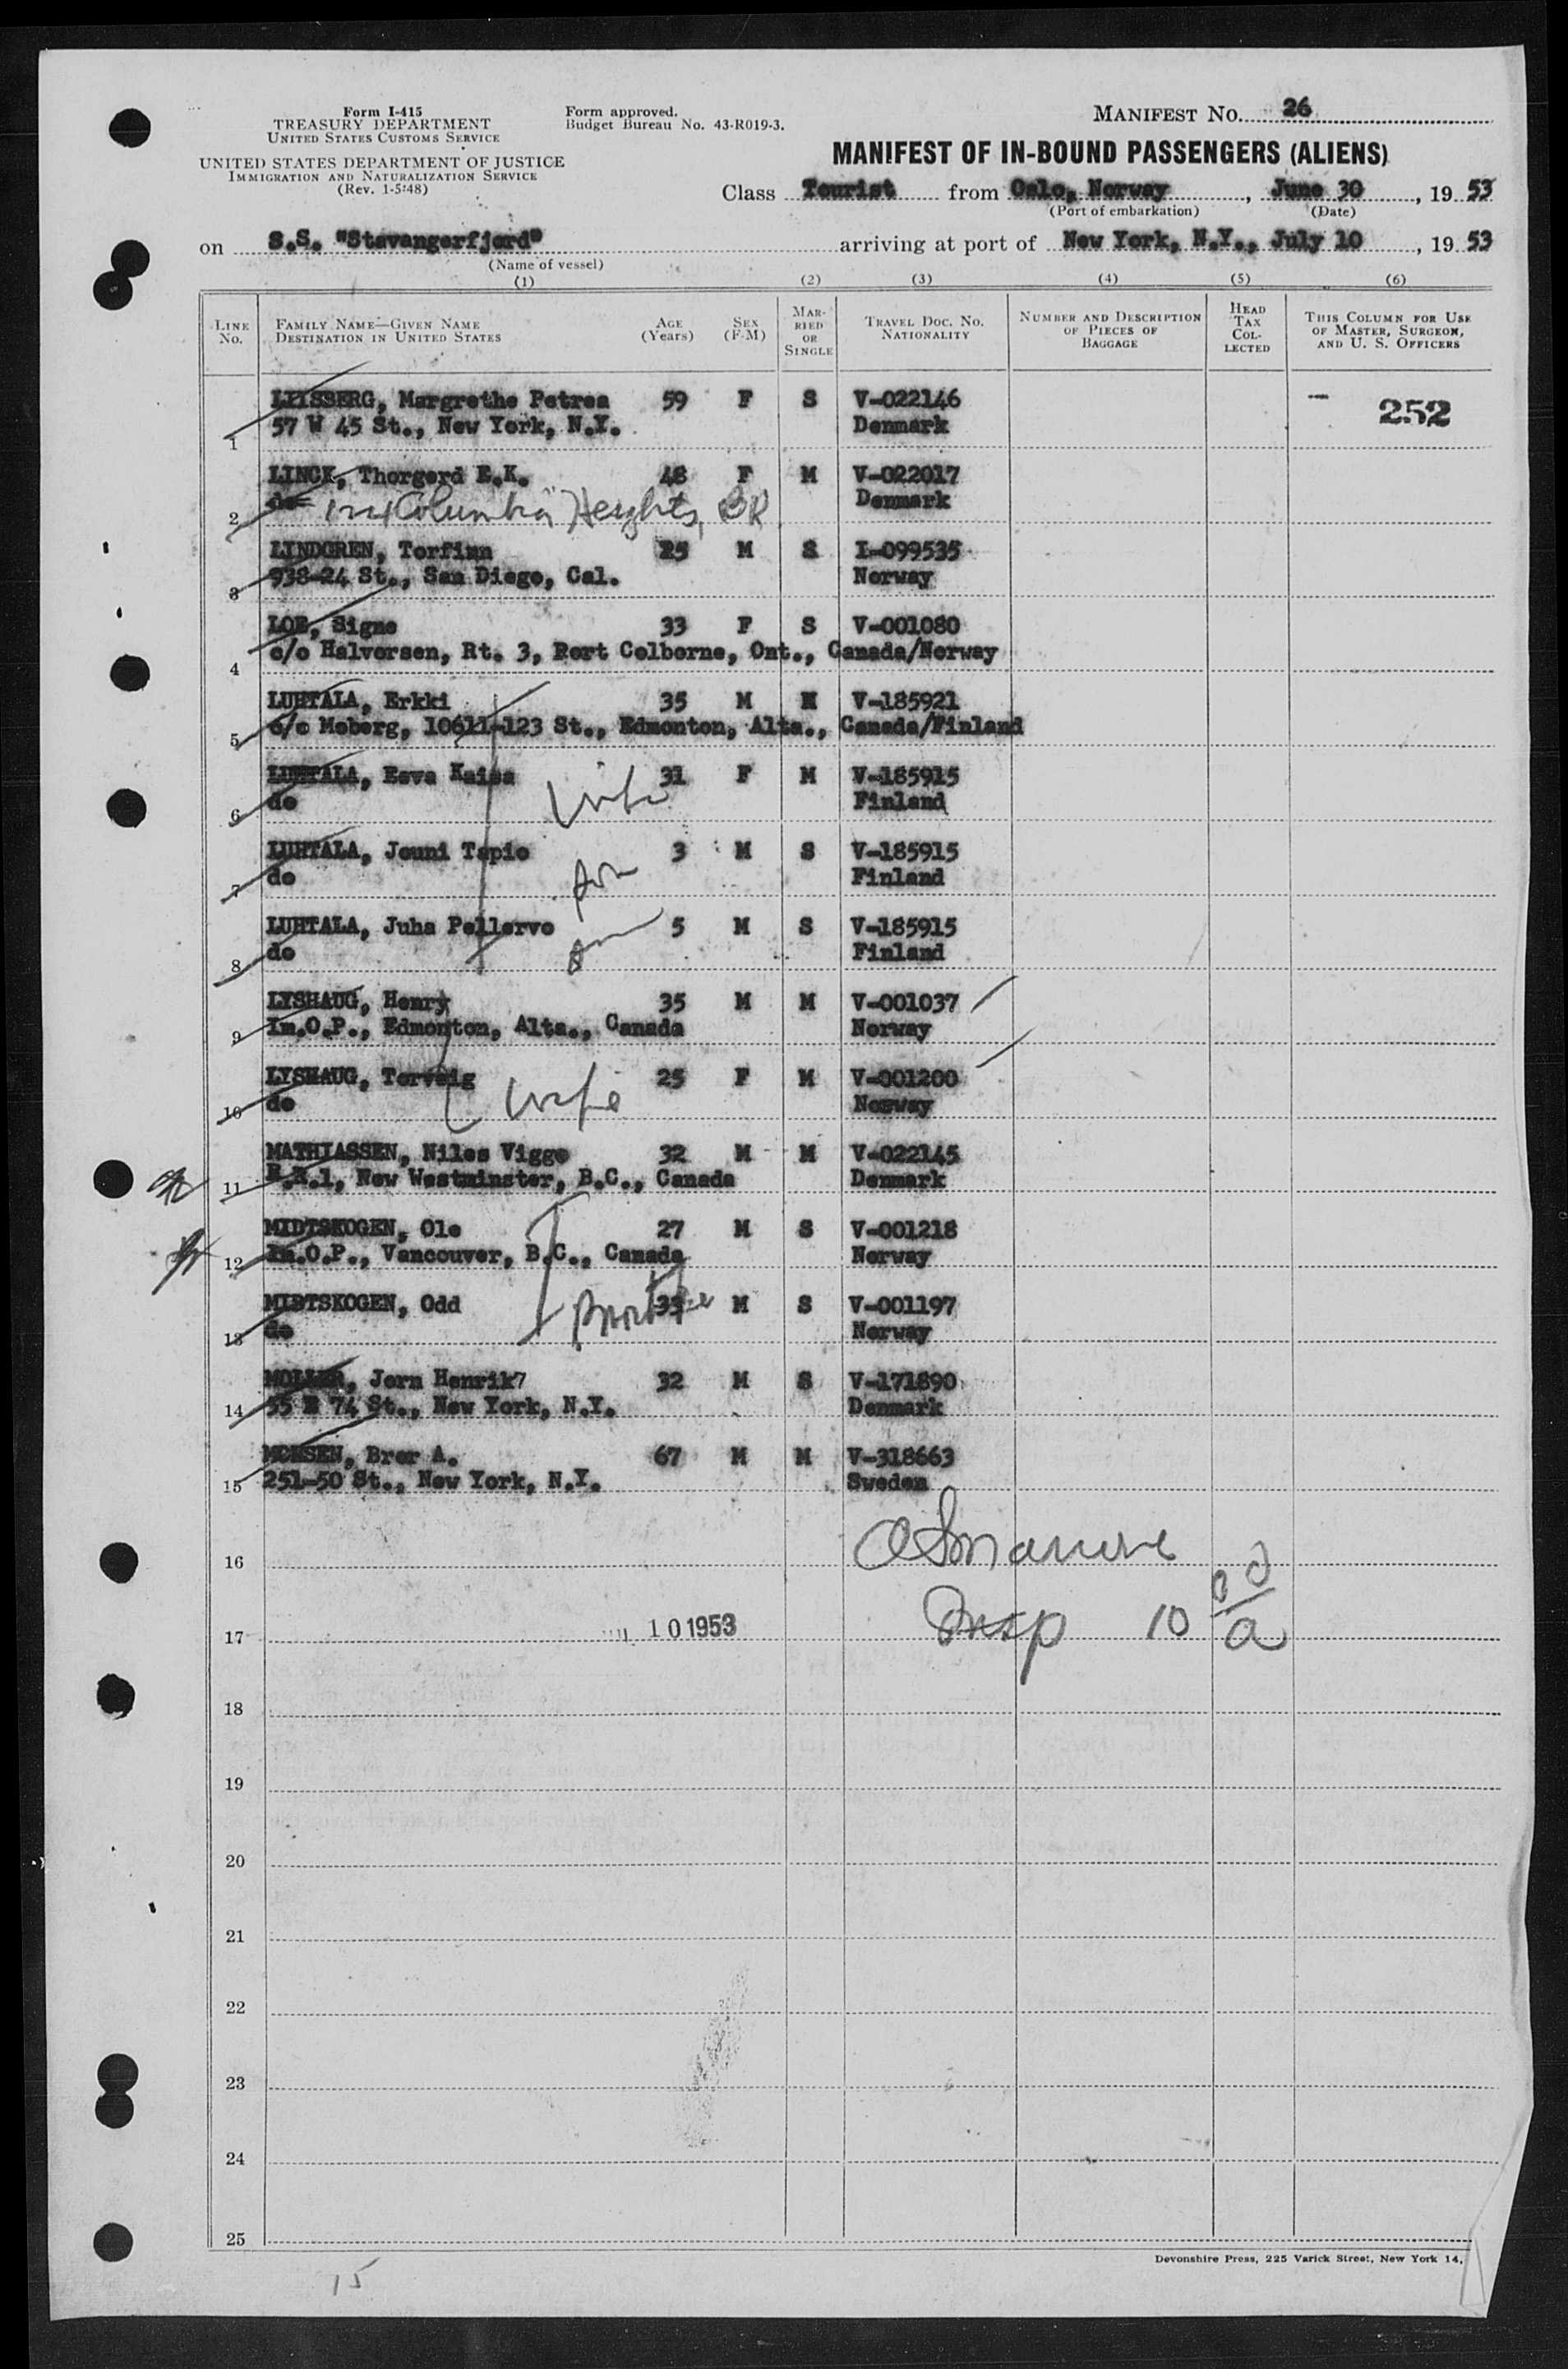 Form I-415
TREASURY DEPARTMENT
UNITED STATES CUSTOMS SERVICE
UNITED STATES DEPARTMENT OF JUSTICE
IMMIGRATION AND NATURALIZATION SERVICE
(Rev. 1-5-48)
Form approved.
Budget Bureau No. 43-R019-3.
MANIFEST NO. 26
MANIFEST OF IN-BOUND PASSENGERS (ALIENS)
Class Tourist from Oslo, Norway, June 30, 19 53
(Port of embarkation) (Date)
on S.S. "Stavangerfjord" arriving at port of New York, N.Y., July 10, 19 53
(Name of vessel)
(1) (2) (3) (4) (5) (6)
LINE NO. FAMILY NAME—GIVEN NAME DESTINATION IN UNITED STATES AGE (YEARS) SEX (F-M) MARRIED OR SINGLE TRAVEL DOC. NO. NATIONALITY NUMBER AND DESCRIPTION OF PIECES OF BAGGAGE HEAD TAX COLLECTED THIS COLUMN FOR USE OF MASTER, SURGEON, AND U. S. OFFICERS
LIISBERG, Margrethe Petrea 59 F S V-022146 252
1 57 W 45 St., New York, N.Y. Denmark
LINCK, Thorgerd E.K. 48 F M V-022017
2 do Columbia Heights, BR Denmark
LINDGREN, Torfinn 25 M S I-099535
3 938-24 St., San Diego, Cal. Norway
LOE, Signe 33 F S V-001080
4 c/o Halvorsen, Rt. 3, Port Colborne, Ont., Canada/Norway
LUHTALA, Erkki 35 M M V-185921
5 c/o Moberg, 10611-123 St., Edmonton, Alta., Canada/Finland
LUHTALA, Eeva Kaisa 31 F M V-185915
6 do wife Finland
LUHTALA, Jouni Tapio 3 M S V-185915
7 do son Finland
LUHTALA, Juha Pellervo 5 M S V-185915
8 do son Finland
LYSHAUG, Henry 35 M M V-001037
9 Im.O.P., Edmonton, Alta., Canada Norway
LYSHAUG, Torveig 25 F M V-001200
10 do wife Norway
MATHIASSEN, Niles Viggo 32 M M V-022145
11 R.R.1, New Westminster, B.C., Canada Denmark
MIDTSKOGEN, Ole 27 M S V-001218
12 Im.O.P., Vancouver, B.C., Canada Norway
MIDTSKOGEN, Odd 33 M S V-001197
13 do Brother Norway
MOLLER, Jorn Henrik 32 M S V-171890
14 55 E 74 St., New York, N.Y. Denmark
MONSEN, Bror A. 67 M M V-318663
15 251-50 St., New York, N.Y. Sweden
16
17 10 1953 Insp 10
18
19
20
21
22
23
24
25
Devonshire Press, 225 Varick Street, New York 14,
15